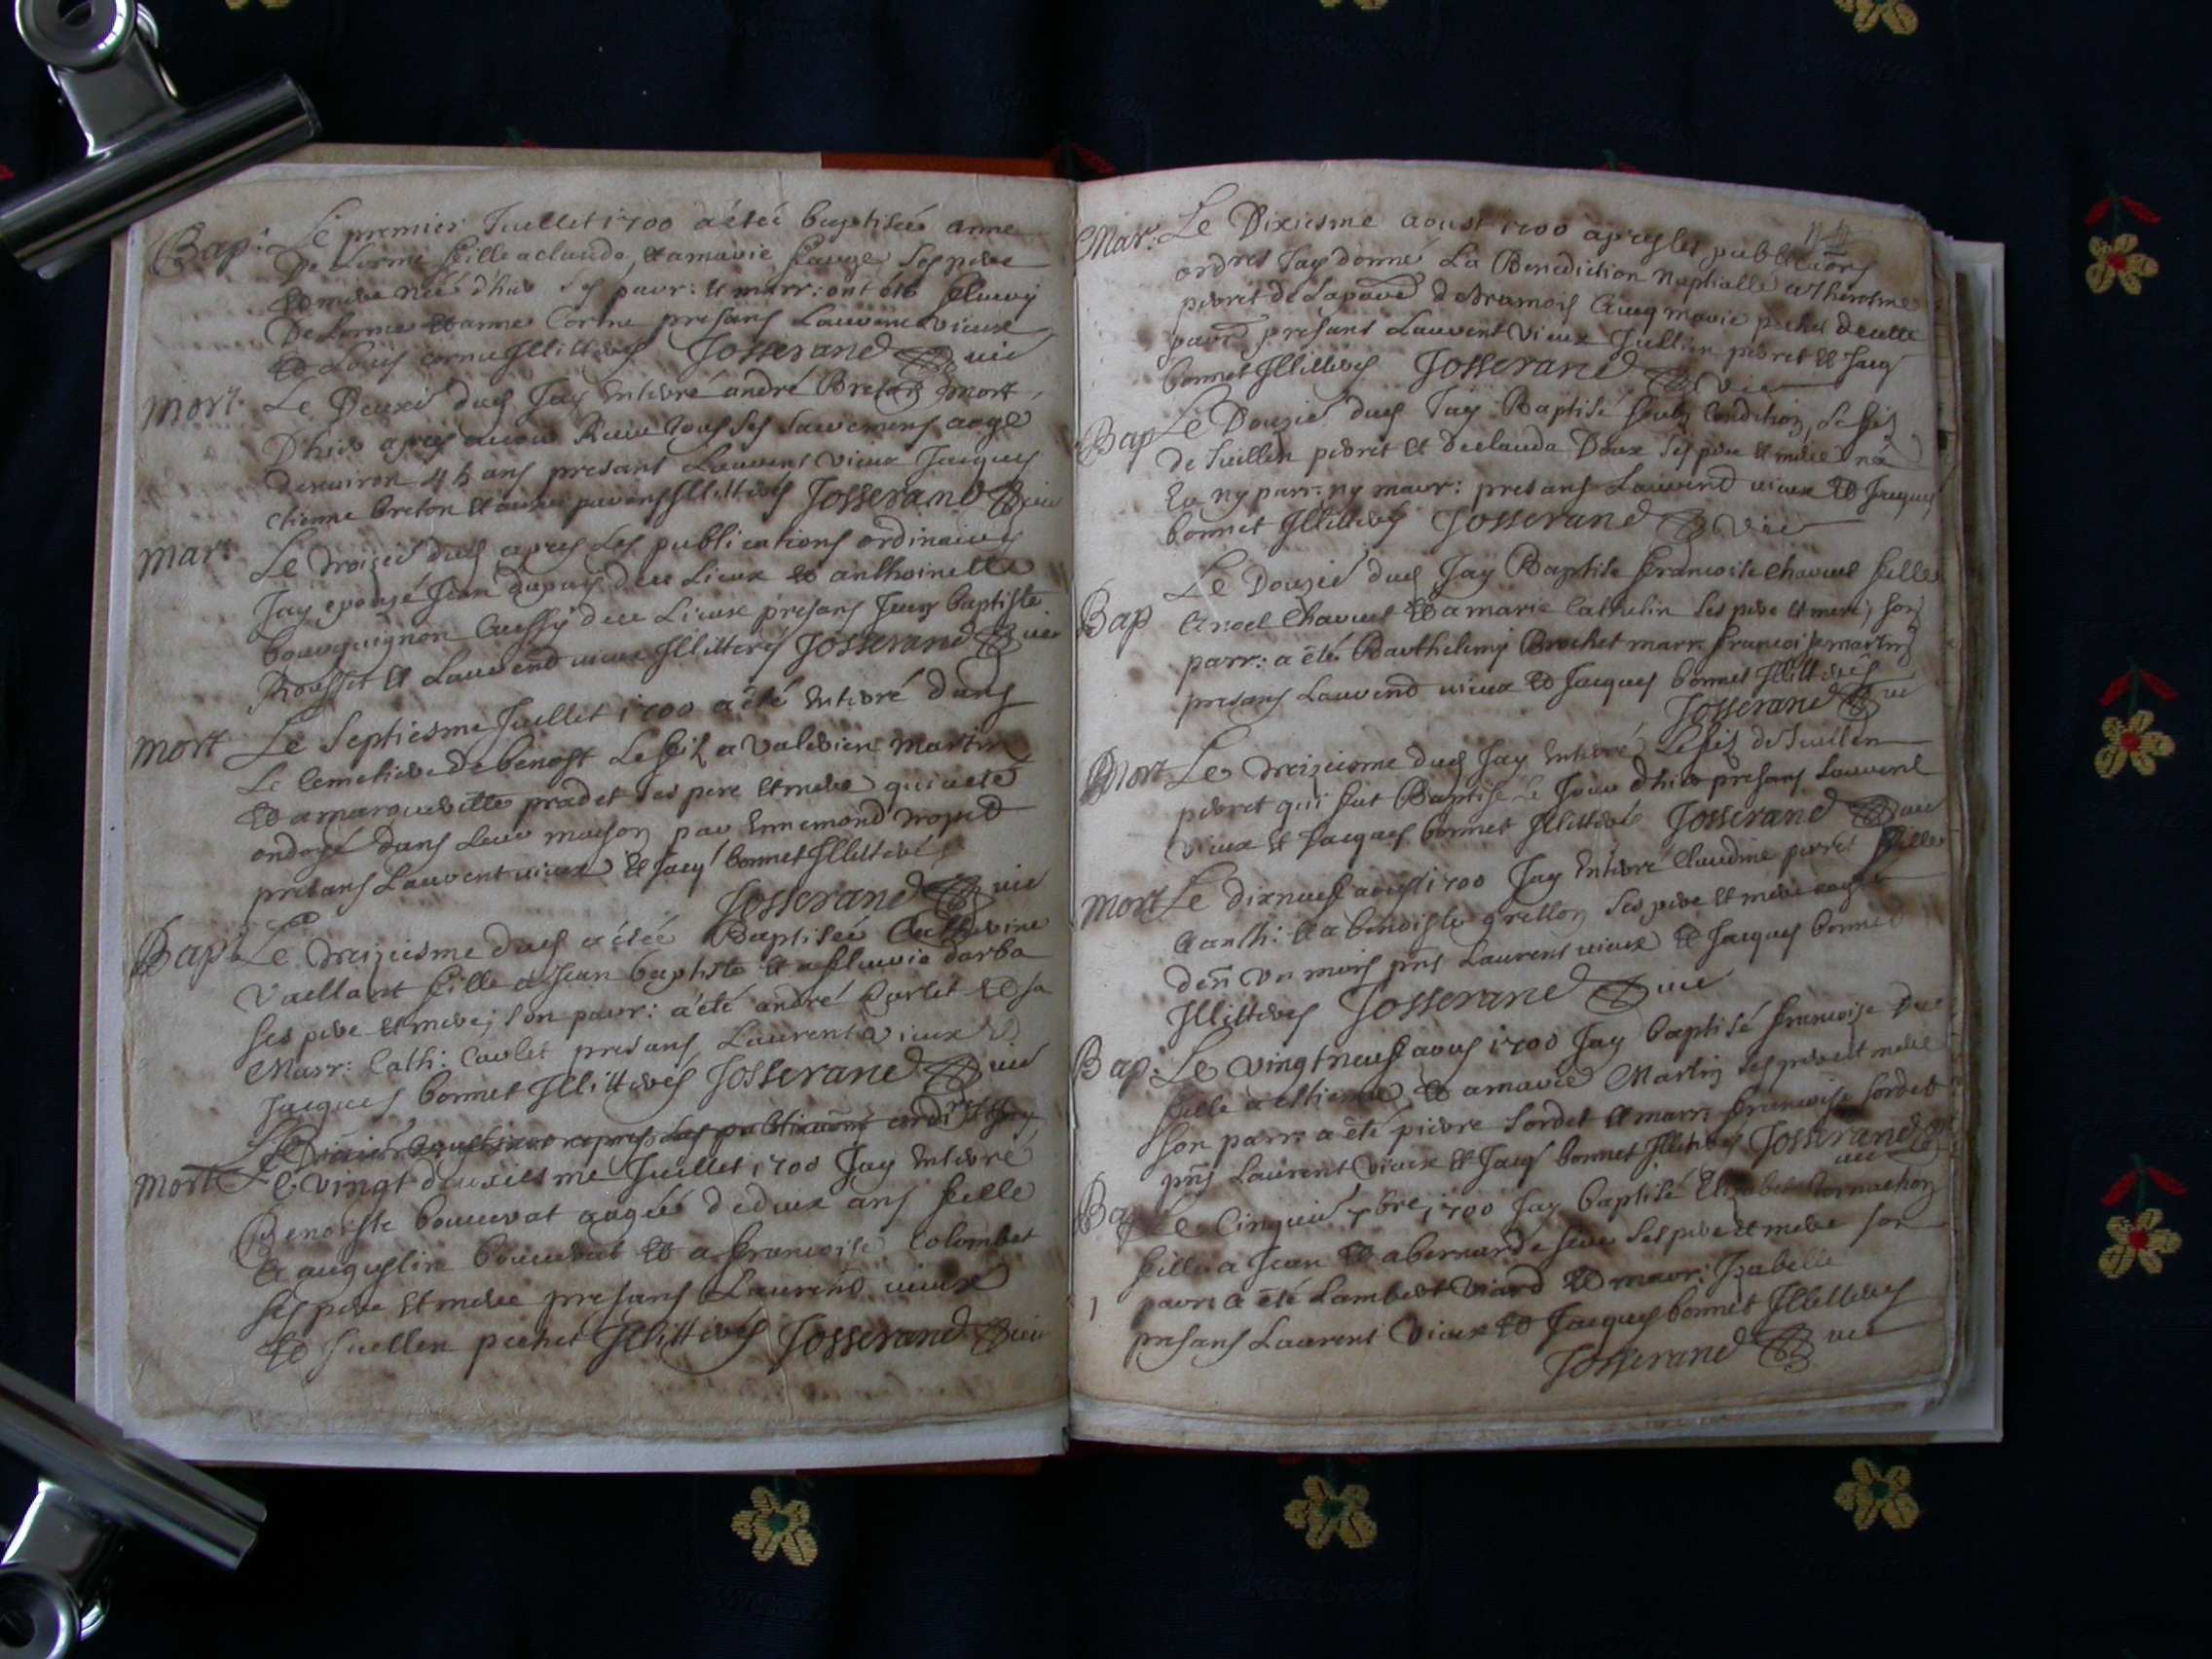 Bap: Le premier Juillet 1700 a étéé baptisée anne
De Lorme fille a claude, et a marie Sauze Ses pere
et mere néé d'hier Ses parr: et marr: ont été fleury
De Lorme et anne Corne presans Laurent vieux
et Louis cornu Illitteres Josserand vic
mort Le Deuxié dud Jay Enterré andré Breton mort
D'hier apres avoir Receu tous Ses Sacremens aagé
d'environ 45 ans presans Laurent vieux Jacques
etienne breton et autres parens Illitteres Josserand vic
mar: Le troizié dud apres Les publications ordinaires
Jay epousé Jean dupuis de ce Lieux et anthoinette
bourguignon aussy de ce Lieux presans Jean baptiste
Rousset et Laurend vieux Illitterés Josserand vic
mort Le Septiesme Juillet 1700 a été Enterré dans
Le Cemetiere de benost Le fils a Valerien martin
et a margueritte pradet Ses pere et mere qui a eté
ondoyé dans Leur maison par Ennemond
presans Laurent vieux et Jacq bonnet Illitterés
Josserand vic
Bapt Le treiziesme dud a étéé Baptiséé Catherine
Vaillant fille a Jean baptiste et a fleurie darba
Ses pere et mere; Son parr: a été andré Carlet et Sa
Marr: Cath: Carlet presans Laurent Vieux et
Jacques bonnet Illitterés Josserand vic
Le Dixié Aoust 1700 apres Les publications ordres Jay
mort Le vingt deuxiesme Juillet 1700 Jay Enterré
Benoiste bouvevat aagéé de deux ans fille
a augustin bouvevat et a francoise Colombet
Ses pere et mere presans Laurend vieux
et Juillen pichet Illitterés Josserand vic
Mar: Le Dixiesme aoust 1700 apres les publications
ordres Jay donné La Benediction Nuptialle a Iherosme
perret de La parr d'Aramois avec marie pichet de cette
parr presans Laurent Vieux Jullien perret et Jacq
bonnet Illitteres Josserand vic
Bap Le Douzié dud Jay Baptisé soubz Condition, Le fils
de Juillen perret et de claude Doux Ses pere et mere n'a
Eu ny parr: ny marr: presans Laurend vieux et Jacques
bonnet Illitteres Josserand vic
Bap Le Douzié dud Jay Baptisé francoise Chavuet fille
a noel Chavuet et a marie Cathelin Ses pere et mere; Son
parr: a été Barthelemy Brochet marr: francoise martin
presans Laurend vieux et Jacques bonnet Illitteres
Josserand vic
Mort Le treiziesme dud Jay Enterré Le fils de Juillen
perret qui fut Baptisé Le Jour d'hier presans Laurent
vieux et Jacques bonnet Illitteré Josserand vic
mort Le dixneuf aoust 1700 Jay Enterré Claudine perret fille
a anth: et a benoiste grellon Ses pere et mere aagéé
d'en un mois pns Laurent vieux et Jacques bonnet
Illitteres Josserand vic
Bap: Le Vingtneuf aous 1700 Jay baptisé francoise
fille a etienne et a marie Martin Ses pere et mere
Son parr: a été pierre Sordet et marr: francoise Sordet
pns Laurent vieux et Jacq bonnet Illitteres Josserand vic
Bap Le Cinquié 7bre 1700 Jay baptisé Elizabet
fille a Jean et a bernarde Ses pere et mere Son
parr: a été Lambert Viard et marr: Izabelle
presans Laurent Vieux et Jacques bonnet Illitteres
Josserand vic